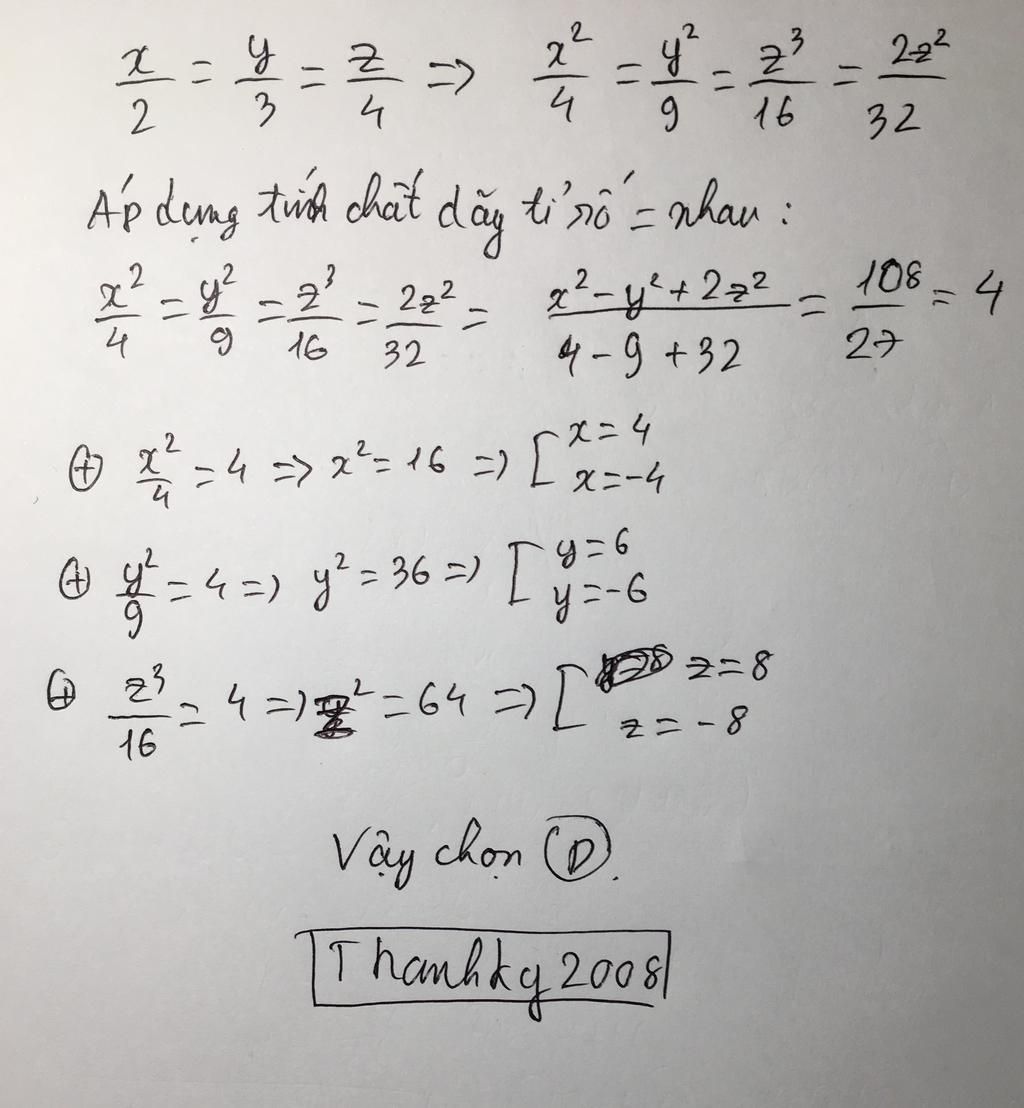 x/2 = y/3 = z/4 => x²/4 = y²/9 = z³/16 = 2z²/32
Áp dụng tính chất dãy tỉ số = nhau :
x²/4 = y²/9 = z³/16 = 2z²/32 = (x² - y² + 2z²)/(4 - 9 + 32) = 108/27 = 4
⊕ x²/4 = 4 => x² = 16 => [ x = 4
x = -4
⊕ y²/9 = 4 => y² = 36 => [ y = 6
y = -6
⊕ z³/16 = 4 => z² = 64 => [ z = 8
z = -8
Vậy chọn Ⓓ.
Thanhkg2008